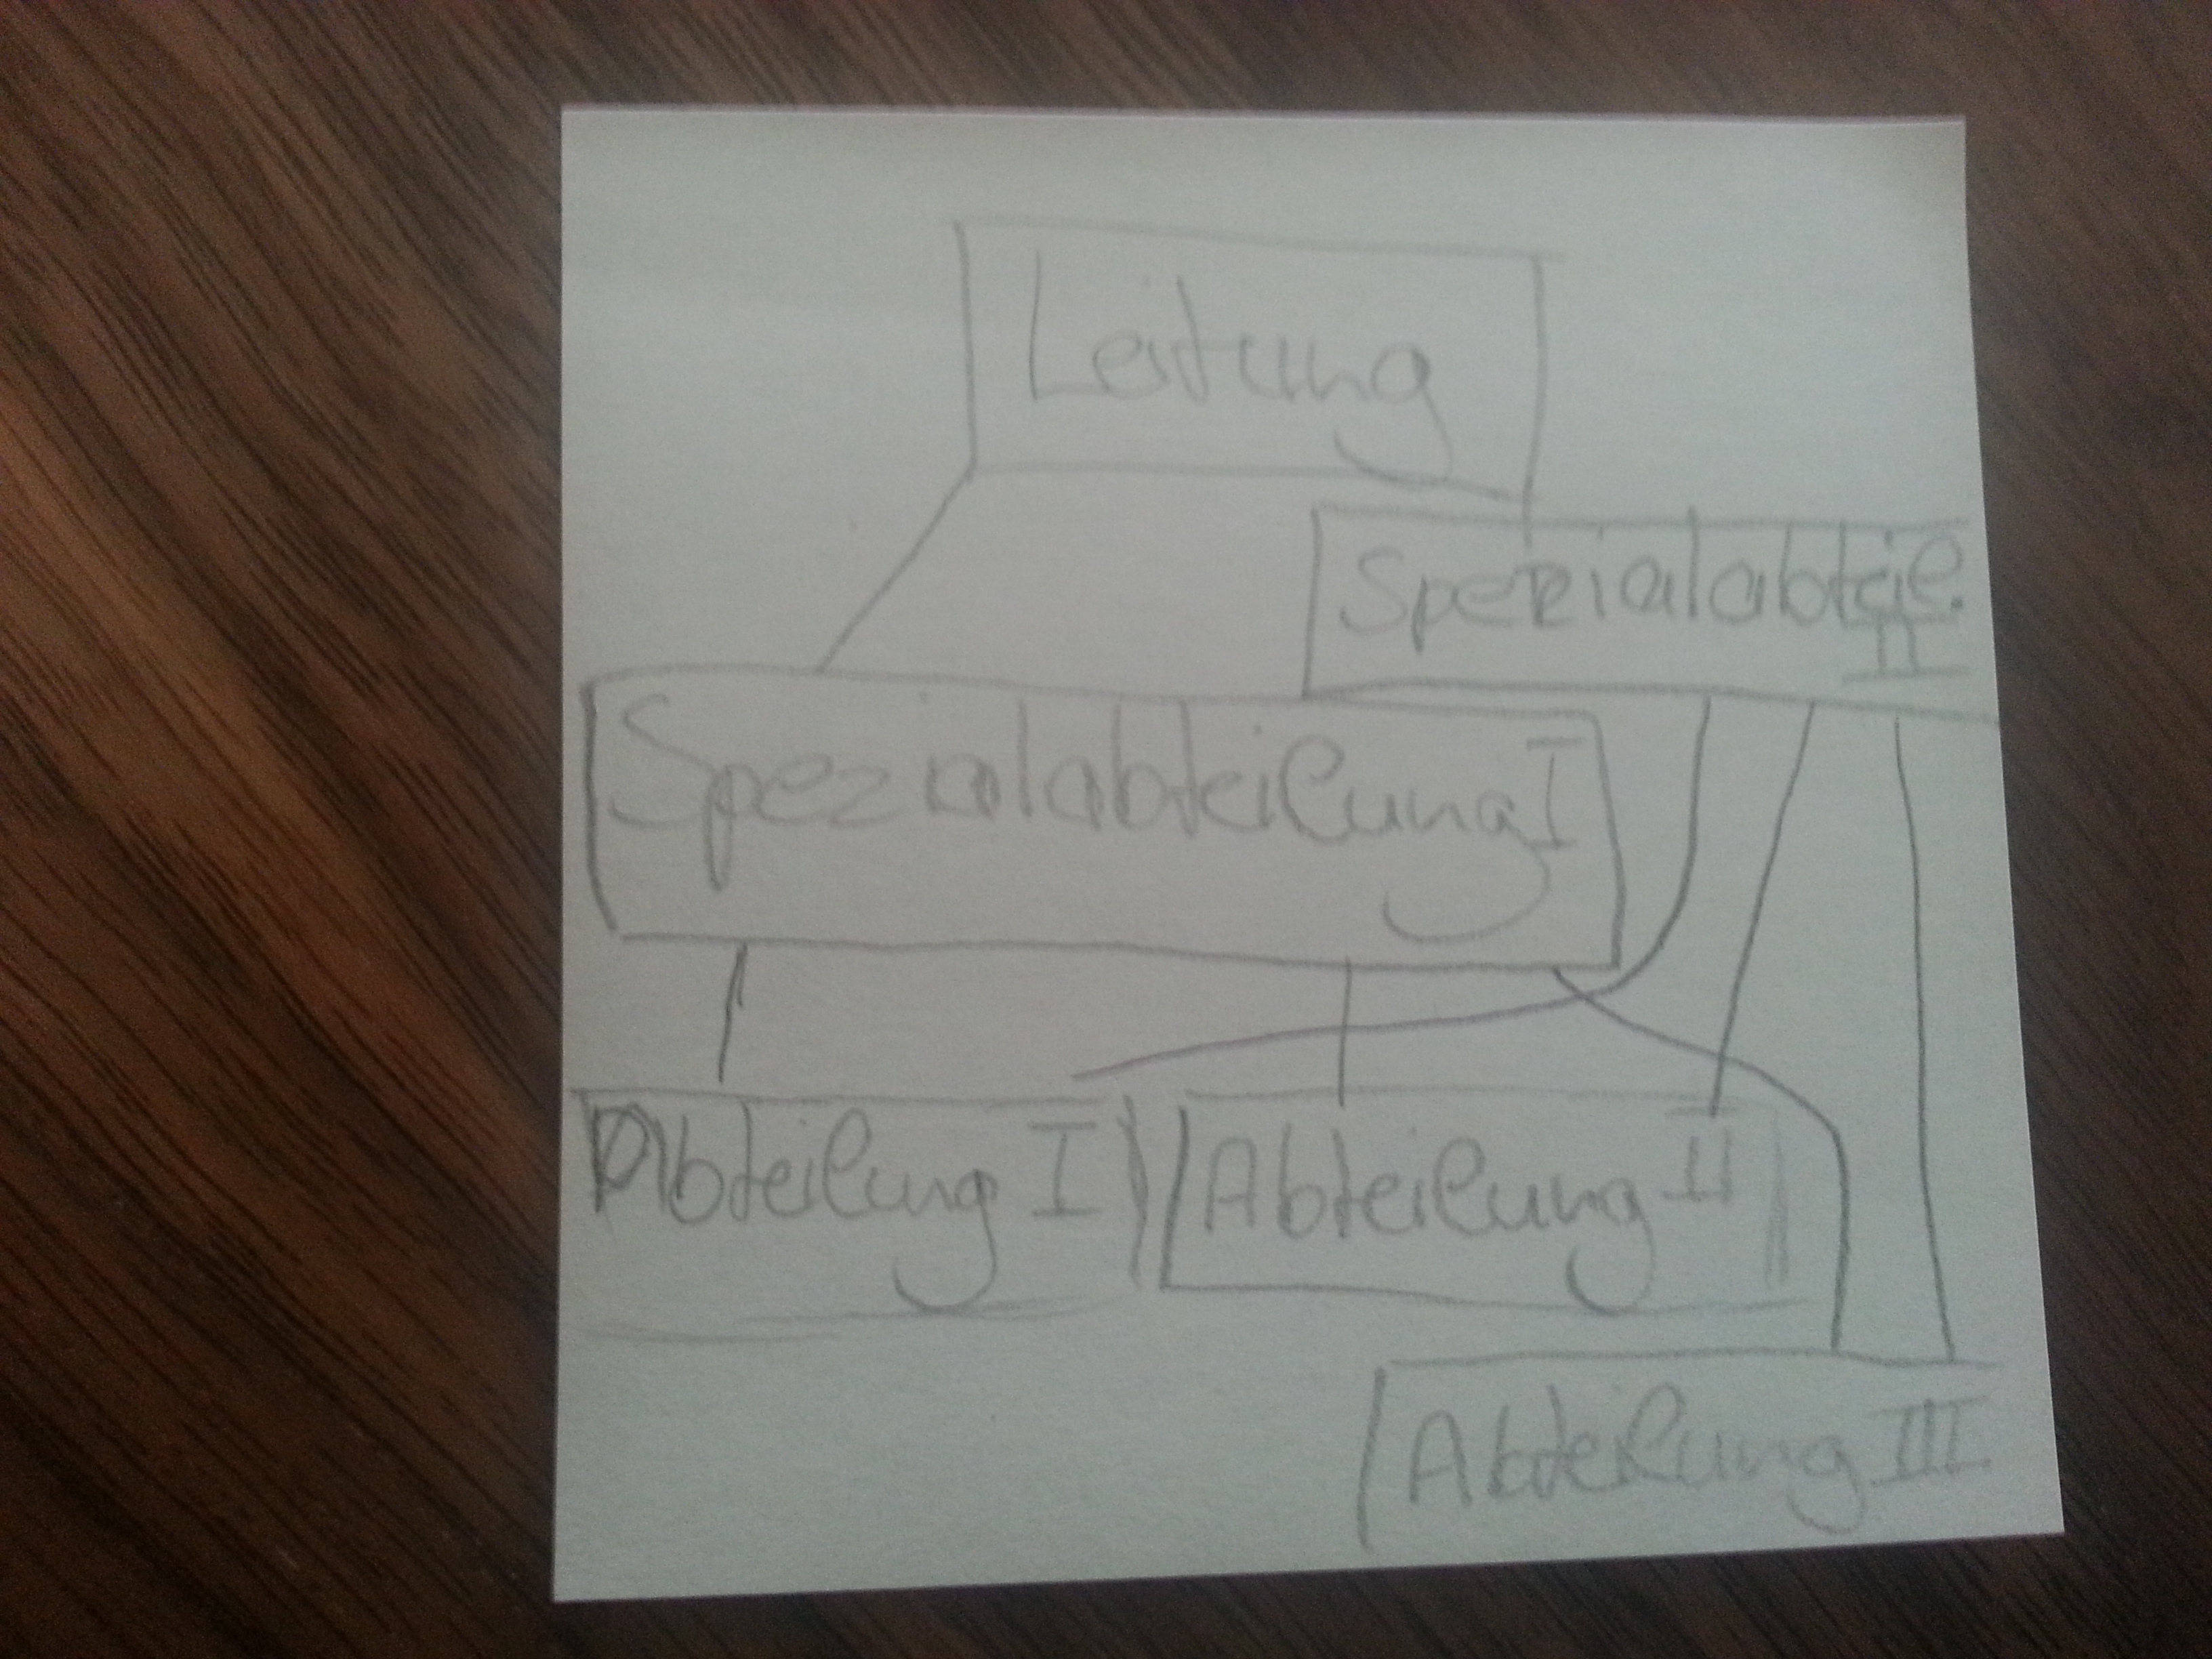 Leitung
Spezialabteil.
II
Spezialabteilung I
Abteilung I
Abteilung II
Abteilung III